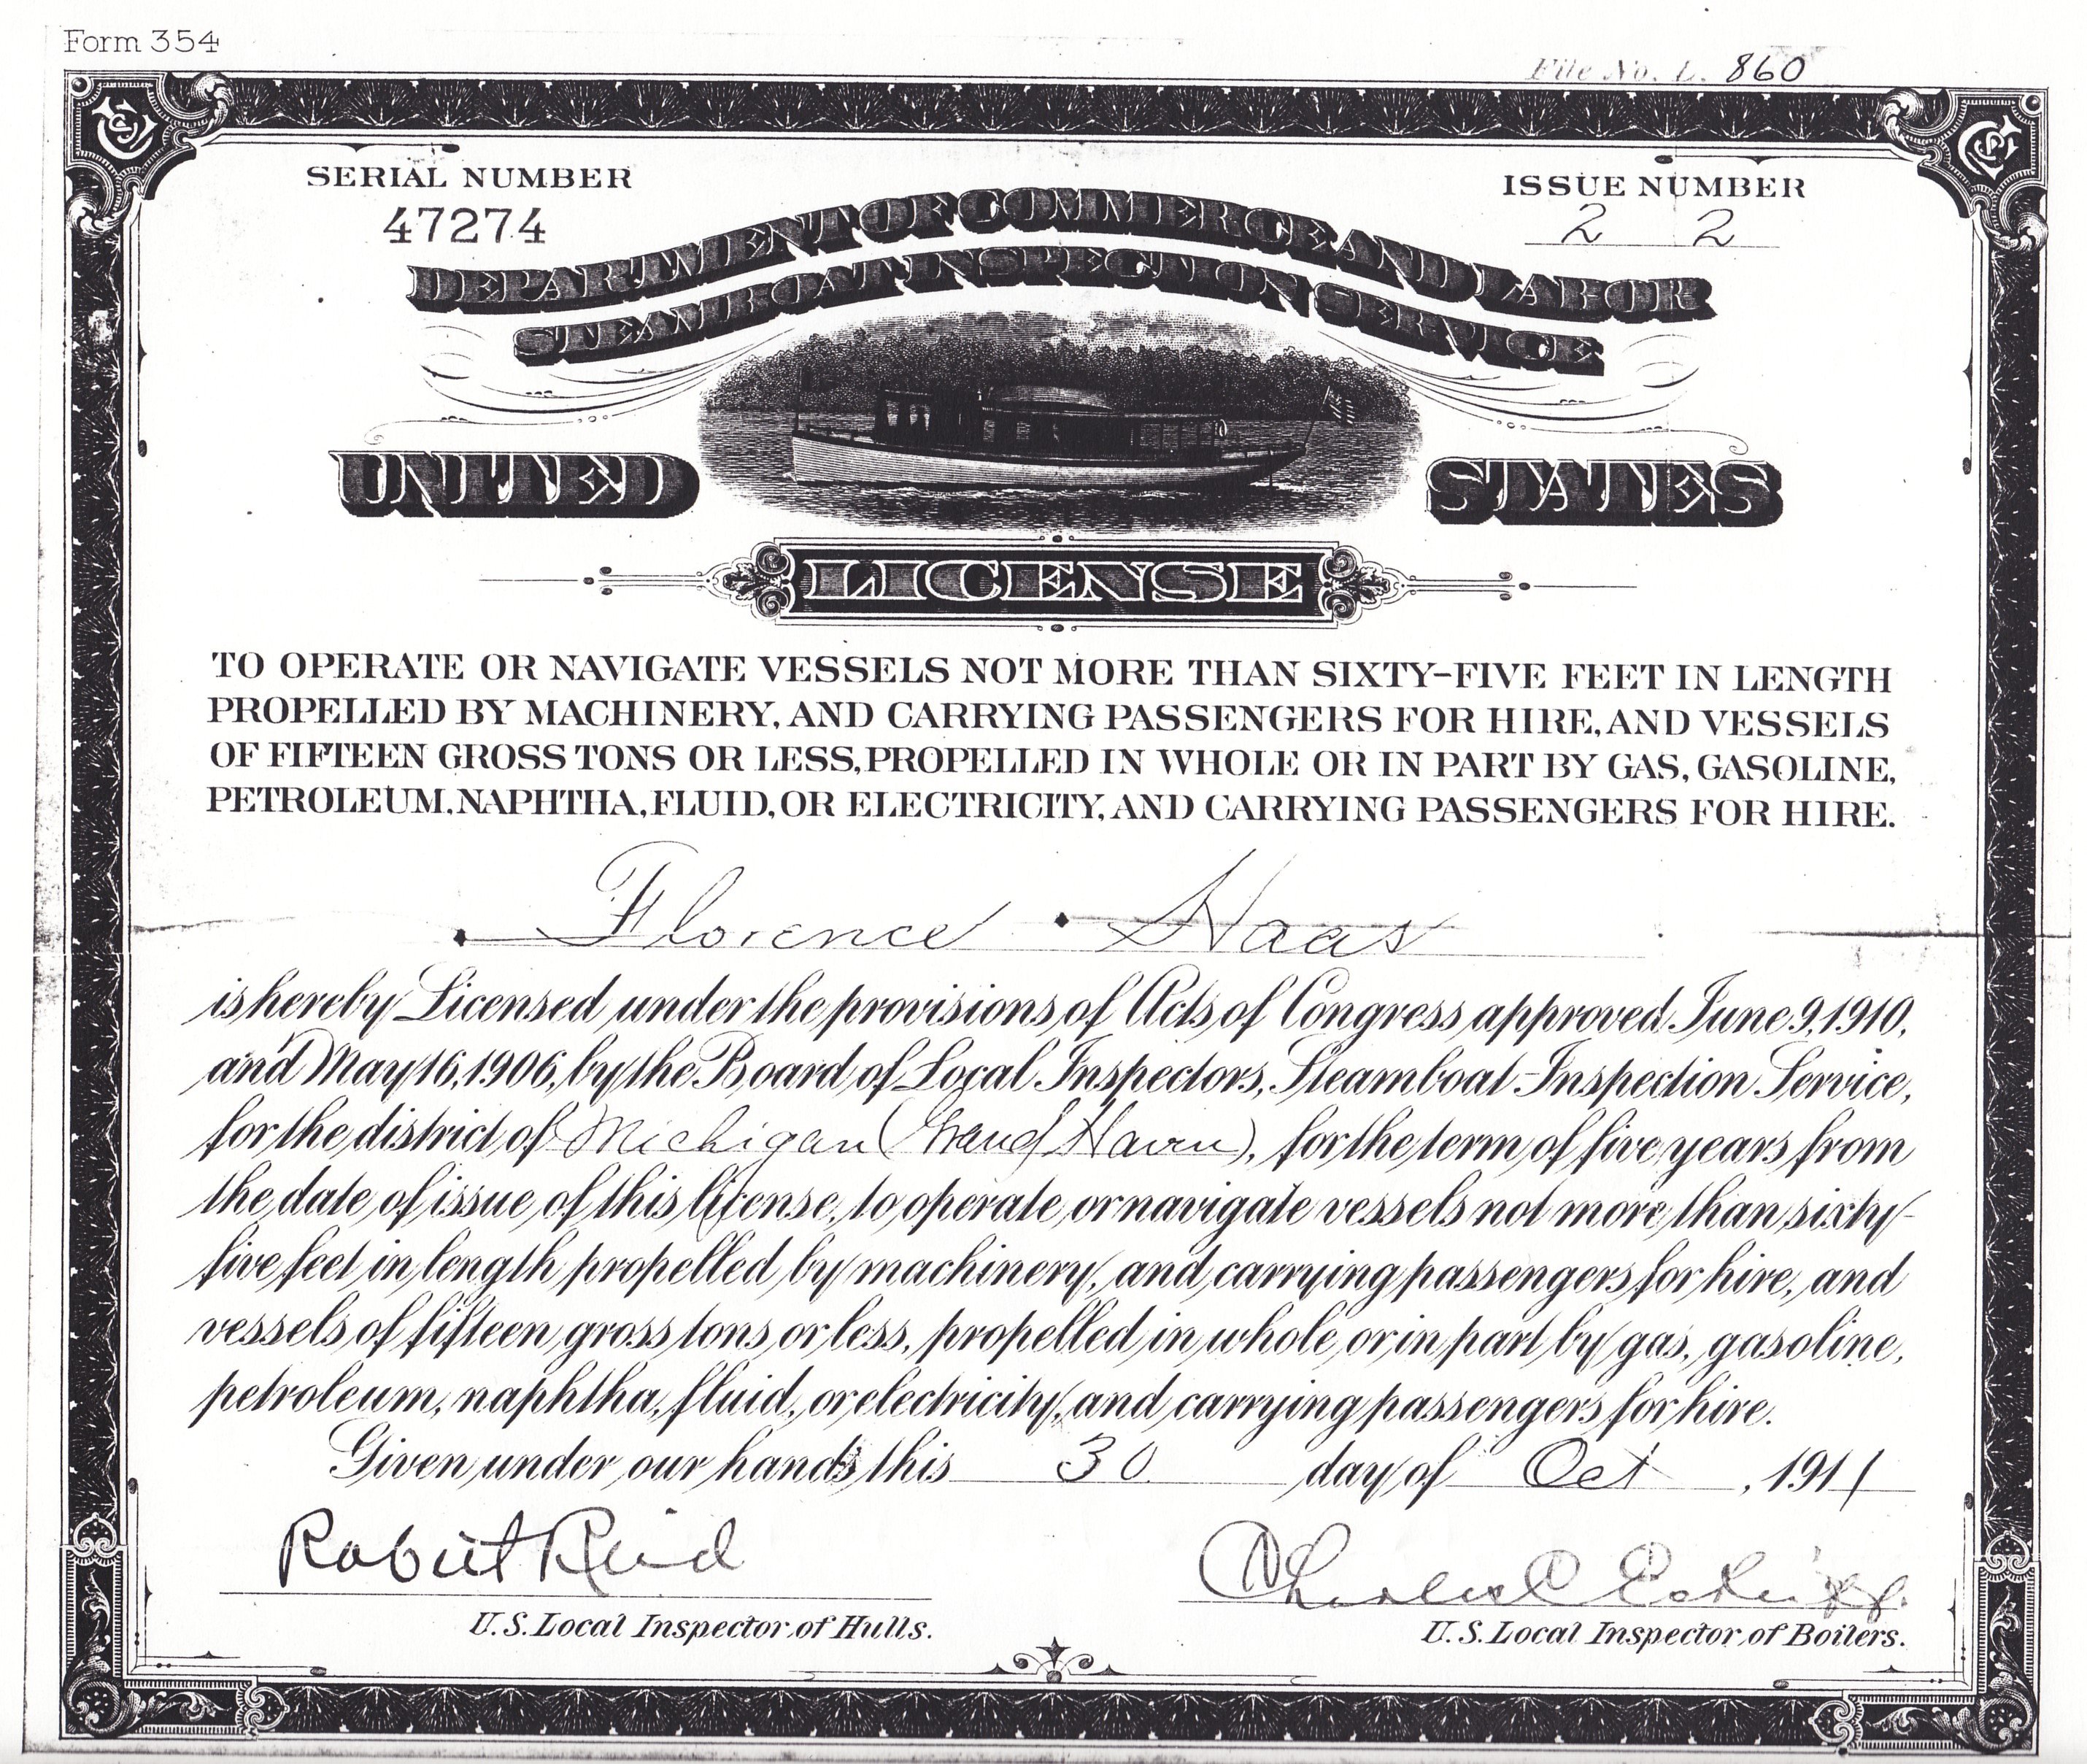 Form 354
File No. L. 860
SERIAL NUMBER
47274
ISSUE NUMBER
2 2
DEPARTMENT OF COMMERCE AND LABOR
STEAMBOAT INSPECTION SERVICE
UNITED STATES
LICENSE
TO OPERATE OR NAVIGATE VESSELS NOT MORE THAN SIXTY-FIVE FEET IN LENGTH
PROPELLED BY MACHINERY, AND CARRYING PASSENGERS FOR HIRE, AND VESSELS
OF FIFTEEN GROSS TONS OR LESS, PROPELLED IN WHOLE OR IN PART BY GAS, GASOLINE,
PETROLEUM, NAPHTHA, FLUID, OR ELECTRICITY, AND CARRYING PASSENGERS FOR HIRE.
Florence Haas
is hereby Licensed under the provisions of Acts of Congress approved June 9, 1910,
and May 16, 1906, by the Board of Local Inspectors, Steamboat-Inspection Service,
for the district of Michigan (Grand Haven), for the term of five years from
the date of issue of this license, to operate or navigate vessels not more than sixty-
five feet in length propelled by machinery, and carrying passengers for hire, and
vessels of fifteen gross tons or less, propelled in whole or in part by gas, gasoline,
petroleum, naphtha, fluid, or electricity, and carrying passengers for hire.
Given under our hands this 30 day of Oct, 1911
Robert Reid
Charles C
U.S. Local Inspector of Hulls.
U.S. Local Inspector of Boilers.